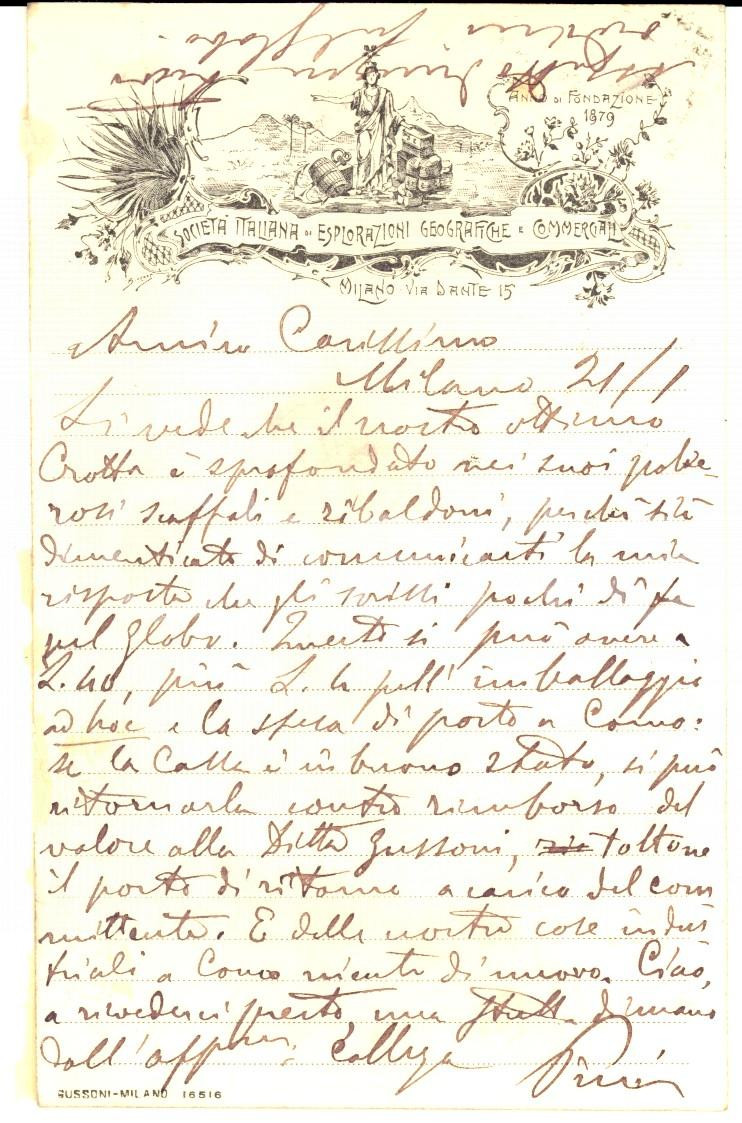 ANNO DI FONDAZIONE
1879
SOCIETÀ ITALIANA DI ESPLORAZIONI GEOGRAFICHE E COMMERCIALI
MILANO VIA DANTE 15
Amico Carissimo
Milano 21/1
Si vede che il nostro ottimo
Crotta è sprofondato nei suoi polve-
rosi scaffali e ribaldoni, perchè si è
dimenticato di comunicarti la mia
risposta che gli scrissi pochi dì fa
pel globo. Questo si può avere a
L. 40, più L. 4 pell'imballaggio
ad hoc e la spesa di porto a Como:
se la Cassa è in buono stato, si può
ritornarla contro rimborso del
valore alla Ditta Gussoni, toltone
il porto di ritorno a carico del com
mittente. E delle nostre cose indus
triali a Como niente di nuovo. Ciao,
a rivederci presto, una stretta di mano
dall'aff.mo Collega
GUSSONI-MILANO 16516